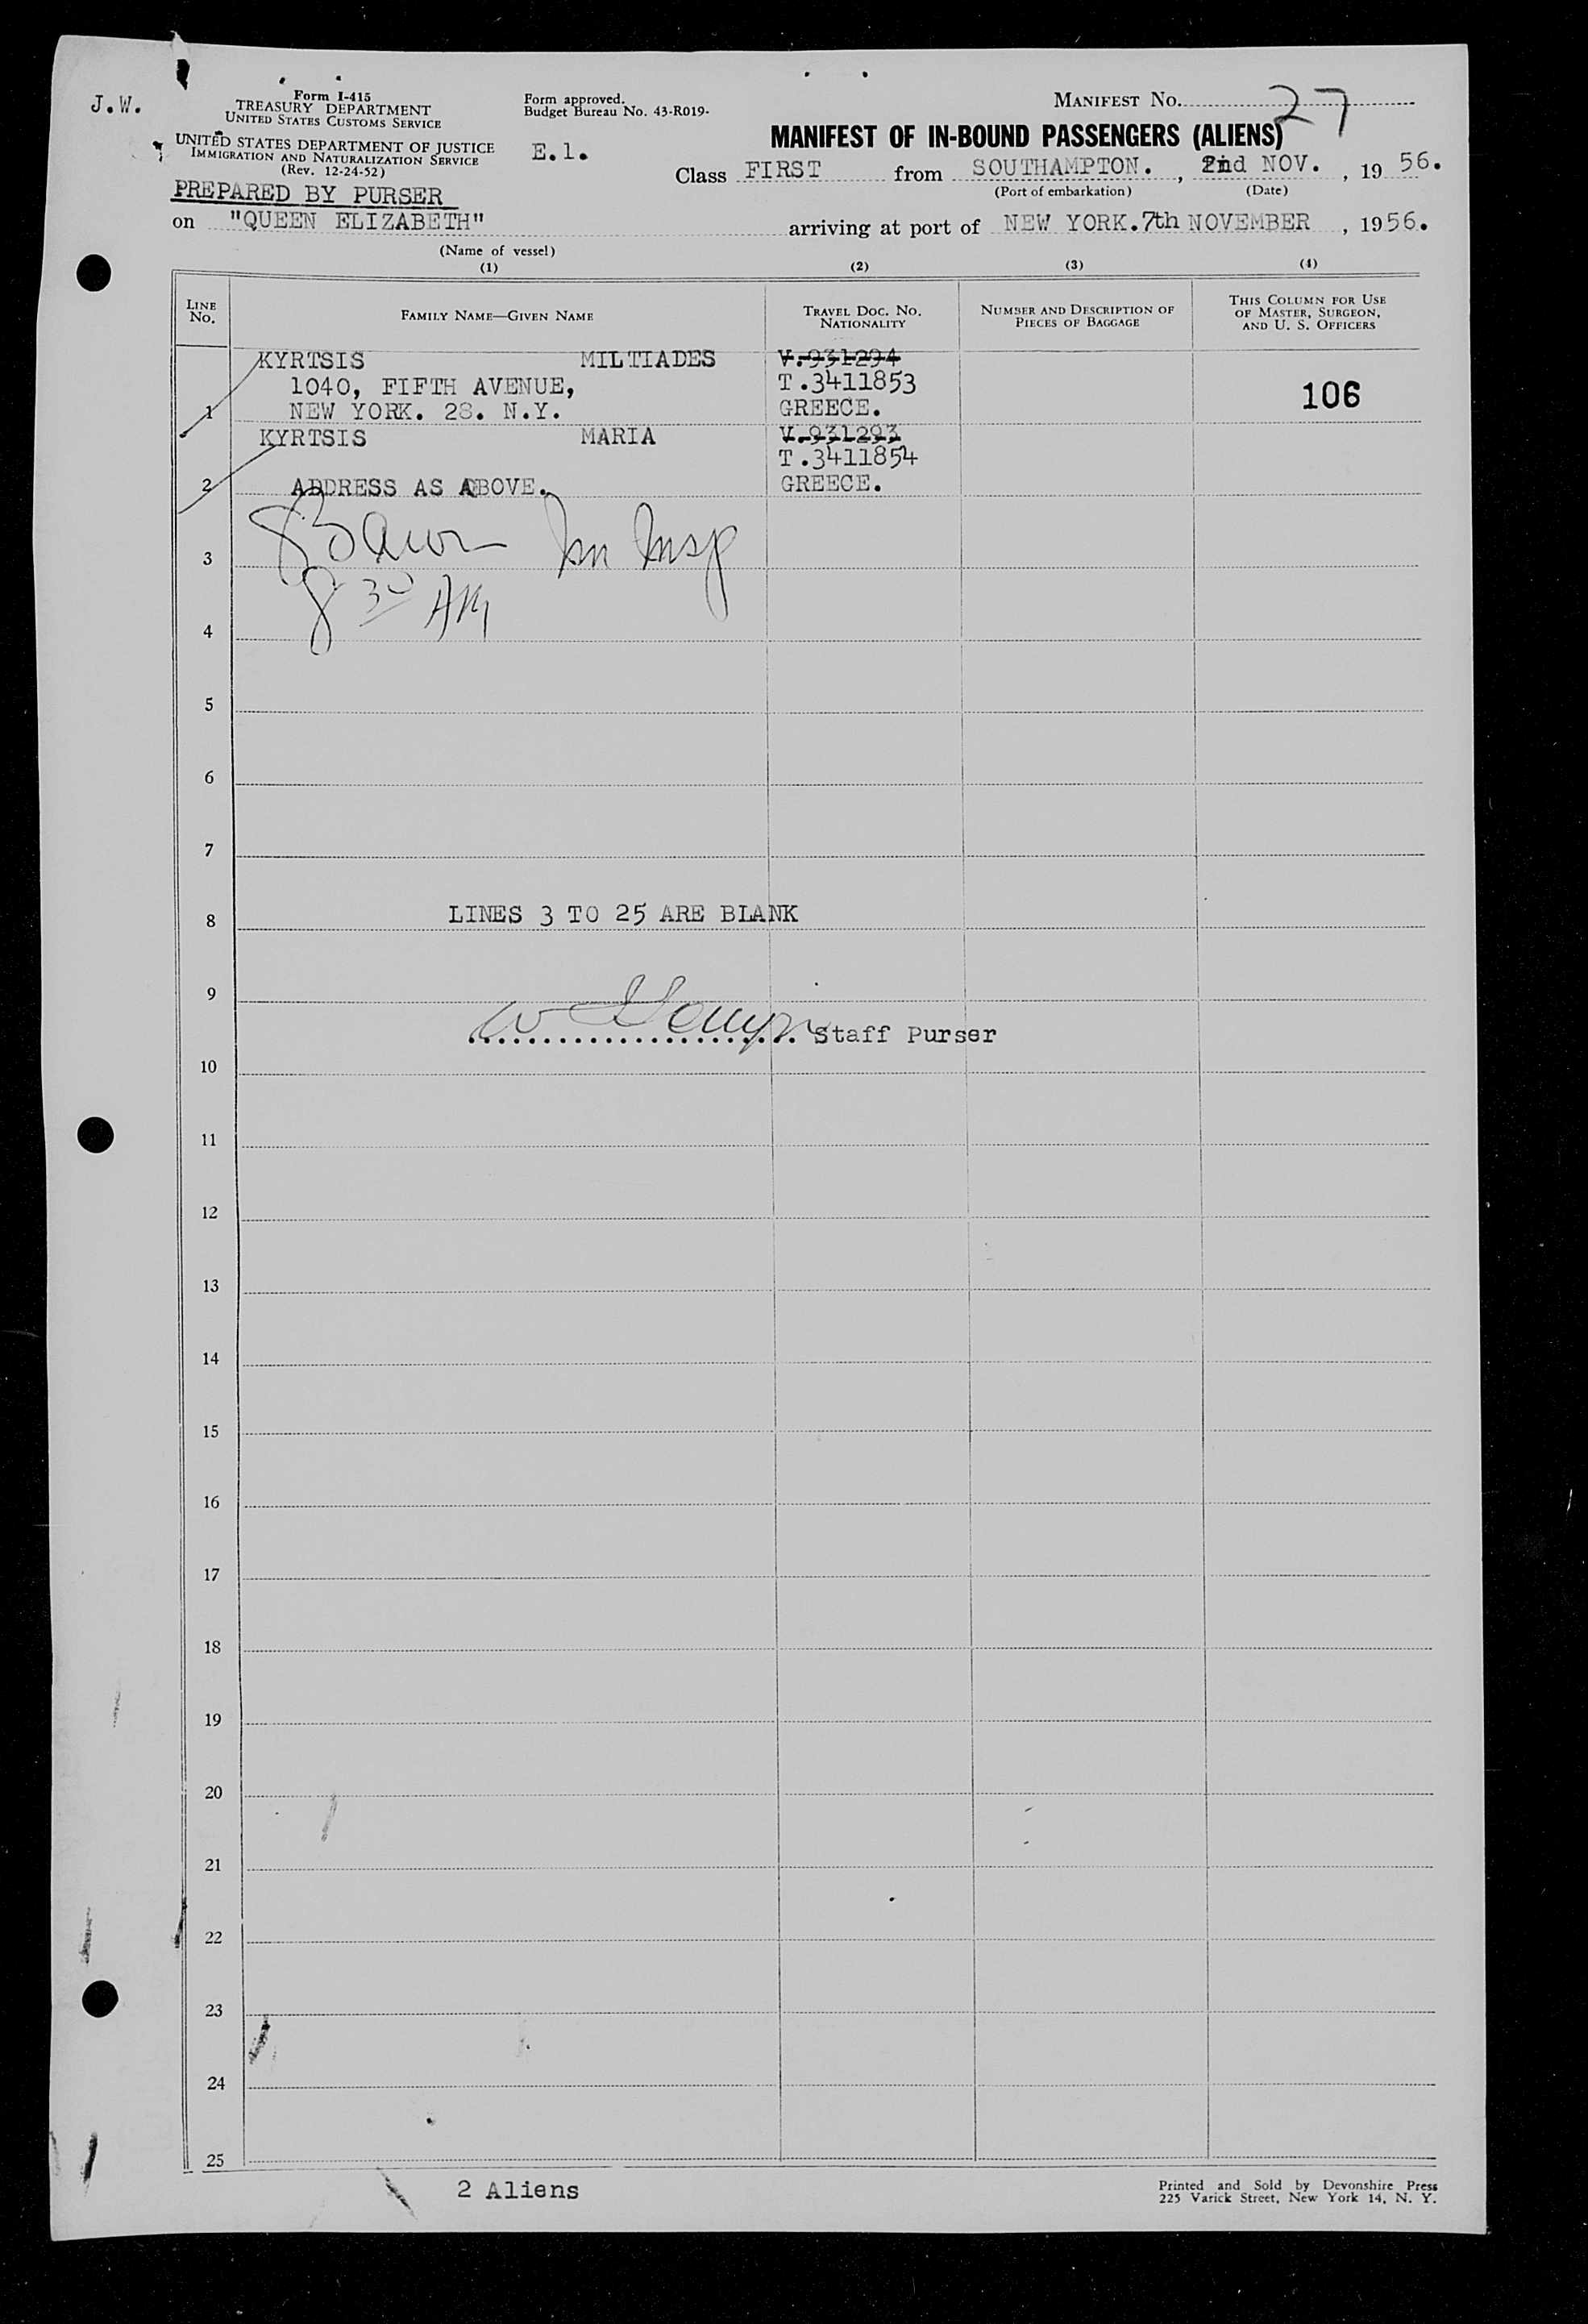 J.W.
Form I-415
TREASURY DEPARTMENT
UNITED STATES CUSTOMS SERVICE
UNITED STATES DEPARTMENT OF JUSTICE
IMMIGRATION AND NATURALIZATION SERVICE
(Rev. 12-24-52)
PREPARED BY PURSER
Form approved.
Budget Bureau No. 43-R019-
E.1.
MANIFEST No. 27
MANIFEST OF IN-BOUND PASSENGERS (ALIENS)
Class FIRST from SOUTHAMPTON. , 2nd NOV. , 19 56.
(Port of embarkation) (Date)
on "QUEEN ELIZABETH" arriving at port of NEW YORK. 7th NOVEMBER , 1956.
(Name of vessel)
(1) (2) (3) (4)
LINE No. FAMILY NAME—GIVEN NAME TRAVEL DOC. NO. NATIONALITY NUMBER AND DESCRIPTION OF PIECES OF BAGGAGE THIS COLUMN FOR USE OF MASTER, SURGEON, AND U. S. OFFICERS
KYRTSIS MILTIADES V.931294
1040, FIFTH AVENUE, T.3411853 106
1 NEW YORK. 28. N.Y. GREECE.
KYRTSIS MARIA V.931293
T.3411854
2 ADDRESS AS ABOVE. GREECE.
3 Im Insp
8 30 AM
4
5
6
7
LINES 3 TO 25 ARE BLANK
8
9
Staff Purser
10
11
12
13
14
15
16
17
18
19
20
21
22
23
24
25
2 Aliens
Printed and Sold by Devonshire Press
225 Varick Street, New York 14, N. Y.